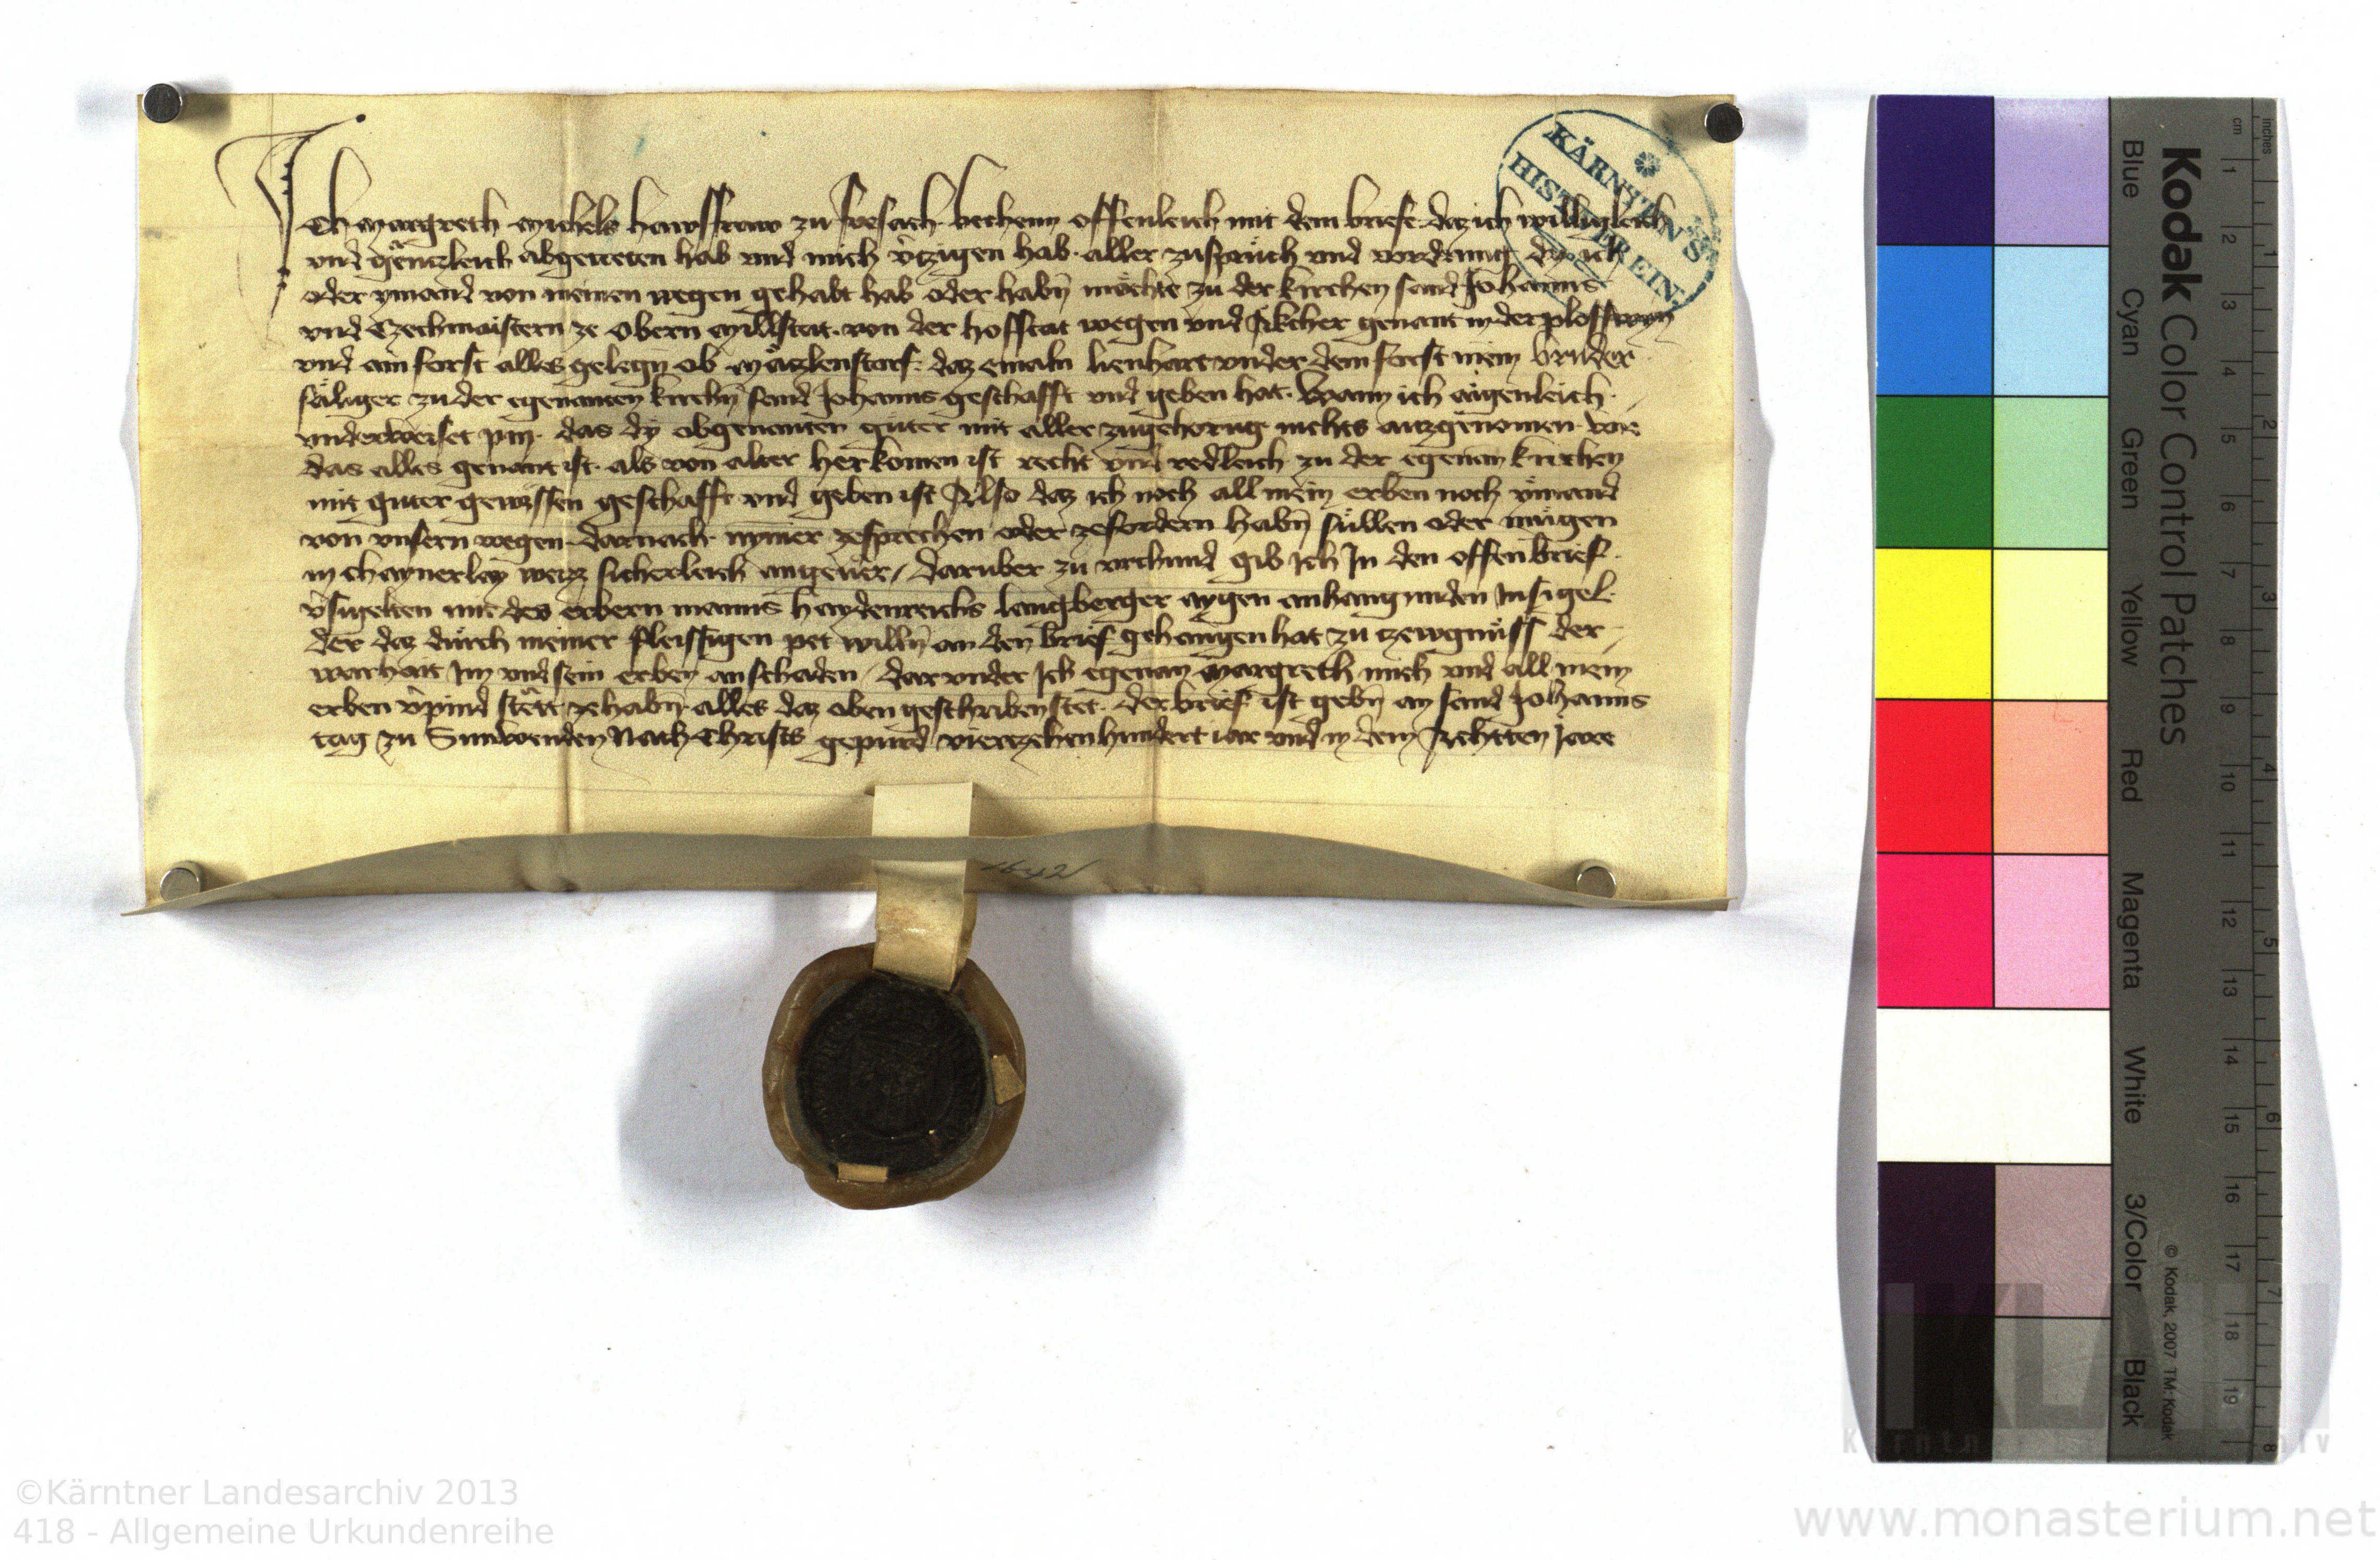 Ich Margreth Michels hawsfraw zu Fresach vechenn offenleich mit dem briefe daz ich willigleich
vnd gentzleich abgetreten hab vnd mich v̂tzigen hab aller zuspruch vnd vordrung dy ich
oder ymand von meinen wegen gehabt hab oder habn̄ möchte zu der kirchen sand Johanns
vnd Czechmaistern ze obern Millstat von der hofstat wegen vnd Akcher genant in der
vnd ain forst alles gelegn ob Mätzlenstorf daz emaln lienhart vnder dem forst mein bruder
säliger zu der egenanten kirchn̄ sand Johanns geschafft vnd geben hat. Wann ich aigenleich
vnderweiset pin das dÿ obgenanten güter mit aller zugehorug nichts auzgenomen wie
das alles genant ist als von alter herkomen ist recht vnd redleich zu der egenan kirchen
mit guter gewissen geschafft vnd geben ist Also daz ich noch all mein erben noch ÿmand
von vnsern wegen darnach nymer zesprechen oder zefordern habn̄ süllen oder mügen
in chaynerlay weizz sicherleich angeuer / darüber zu vrchund gib Ich In den offen brief
v̂sigelten mit des erbern manns haydenreichs langberger aygen anhangunden Insigel
der daz durch meiner fleissigen pet willn̄ an den brief gehangen hat zu czewgnüss der
warhait Im vnd sein erben an schaden / dar vnder Ich egenan Margreth mich vnd all mein
erben v̂pind stêtt zehabn̄ alles daz oben geschriben stet. Der brief ist gebn̄ an sand Johanns
tag zu Sunwenden Nach Christs gepurd vierczehenhundert iar vnd in dem Achtten Jare
KÄRNTEN'S
HIST. VEREIN.
1642
Kodak Color Control Patches
Blue Cyan Green Yellow Red Magenta White 3/Color Black
© Kodak, 2007 TM: Kodak
cm 1 2 3 4 5 6 7 8 9 10 11 12 13 14 15 16 17 18 19
inches 1 2 3 4 5 6 7 8
©Kärntner Landesarchiv 2013
418 - Allgemeine Urkundenreihe
www.monasterium.net